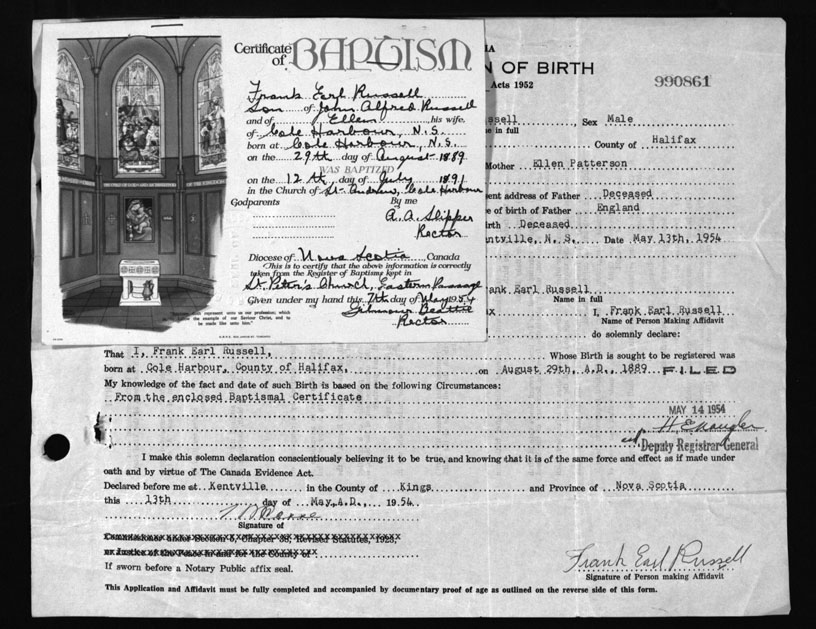 Certificate
of BAPTISM
Frank Earl Russell
Son of John Alfred Russell
and of Ellen his wife,
of Cole Harbour, N.S.
born at Cole Harbour, N.S.
on the 29th day of August 1889
WAS BAPTIZED
on the 12th day of July 1891
in the Church of St. Andrew, Cole Harbour
Godparents By me
A. A. Slipper
Rector
Diocese of Nova Scotia, Canada
This is to certify that the above information is correctly
taken from the Register of Baptisms kept in
St. Peter's Church, Eastern Passage
Given under my hand this 7th day of May 1954
Gilmour Beattie
Rector
represent unto us our profession; which
the example of our Saviour Christ, and to
be made like unto him.
IA
N OF BIRTH
Acts 1952
990861
ssell, Sex Male
e in full
County of Halifax
Mother Ellen Patterson
ent address of Father Deceased
e of birth of Father England
irth Deceased
entville, N. S. Date May 13th, 1954
ank Earl Russell
Name in full
ax I, Frank Earl Russell
Name of Person Making Affidavit
do solemnly declare:
That I, Frank Earl Russell, Whose Birth is sought to be registered was
born at Cole Harbour, County of Halifax, on August 29th, A.D., 1889 FILED
My knowledge of the fact and date of such Birth is based on the following Circumstances:
From the enclosed Baptismal Certificate
MAY 14 1954
Deputy Registrar General
I make this solemn declaration conscientiously believing it to be true, and knowing that it is of the same force and effect as if made under
oath and by virtue of The Canada Evidence Act.
Declared before me at Kentville in the County of Kings and Province of Nova Scotia
this 13th day of May, A.D., 1954
Signature of
If sworn before a Notary Public affix seal.
Frank Earl Russell
Signature of Person making Affidavit
This Application and Affidavit must be fully completed and accompanied by documentary proof of age as outlined on the reverse side of this form.